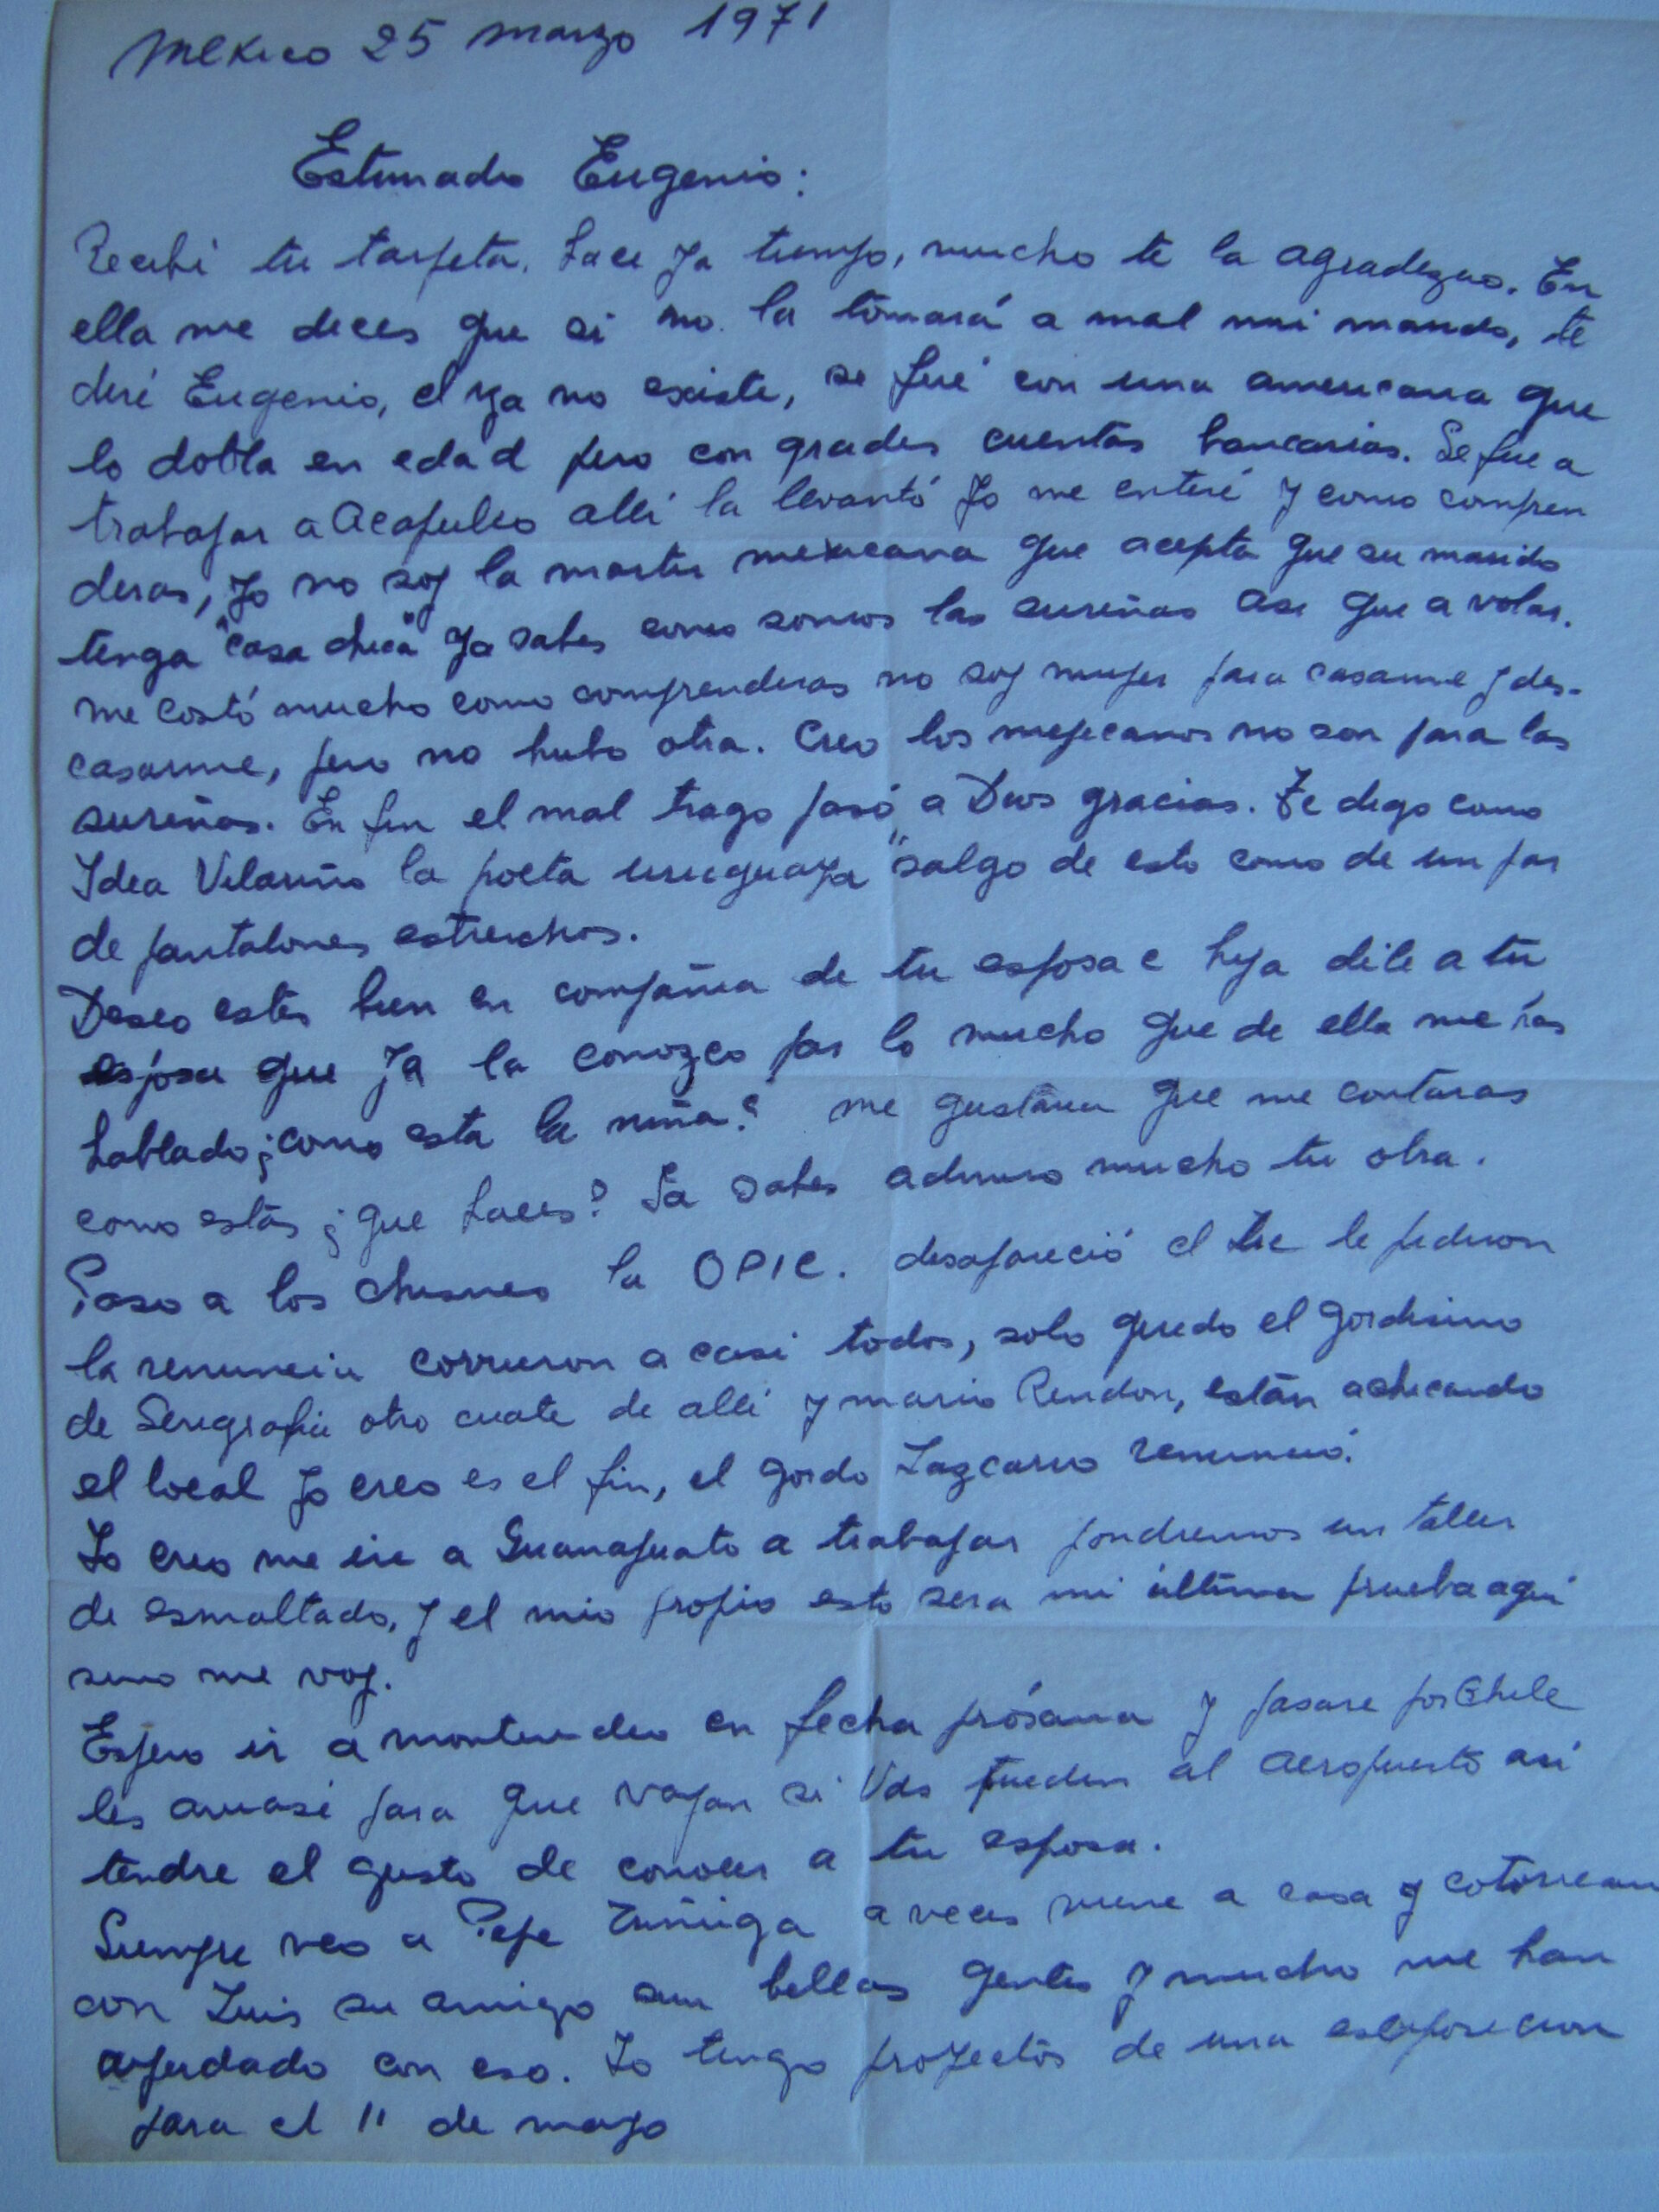 Mexico 25 marzo 1971
Estimado Eugenio:
Recibi tu tarjeta. hace ya tiempo, mucho te la agradezco. En
ella me dices que si no la tomará a mal mi marido, te
diré Eugenio, el ya no existe, se fué con una americana que
lo dobla en edad pero con grades cuentas bancarias. Se fue a
trabajar a Acapulco alli la levantó yo me enteré y como compren
deras, yo no soy la martir mexicana que acepta que su marido
tenga "casa chica" ya sabes como somos las sureñas asi que a volar.
me costó mucho como comprenderas no soy mujer para casarme y des-
casarme, pero no hubo otra. Creo los mejicanos no son para las
sureñas. En fin el mal trago pasó a Dios gracias. Te digo como
Idea Vilariño la poeta uruguaya "salgo de esto como de un par
de pantalones estrechos.
Deseo estes bien en compañia de tu esposa e hija dile a tu
esposa que ya la conozco por lo mucho que de ella me has
hablado ¿como esta la niña? me gustaria que me contaras
como estás ¿que haces? Ya sabes admiro mucho tu obra.
Paso a los chismes la OPIC. desapareció el lic le pidieron
la renuncia corrieron a casi todos, solo quedo el gordisimo
de Serigrafia otro cuate de alli y mario Rendon, están achicando
el local yo creo es el fin, el gordo Lazcano renunció.
Yo creo me ire a Guanajuato a trabajar pondremos un taller
de esmaltado, y el mio propio esto sera mi última prueba aqui
sino me voy.
Espero ir a montevideo en fecha prósima y pasare por Chile
les avisaré para que vayan si Vds pueden al aeropuerto asi
tendre el gusto de conocer a tu esposa.
Siempre veo a Pepe Zuñiga a veces viene a casa y cotorrean
con Luis su amigo son bellas gentes y mucho me han
ayudado con eso. Yo tengo proyectos de una esposicion
para el 11 de mayo